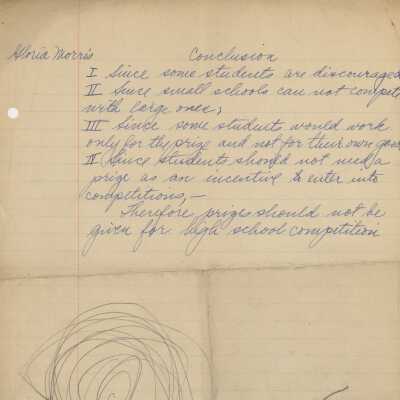 Gloria Morris Conclusion
I Since some students are discouraged
II Since small schools can not compete
with large ones;
III Since some students would work
only for the prize and not for their own good
II Since students should not need a
prize as an incentive to enter into
competitions, —
Therefore prizes should not be
given for high school competition